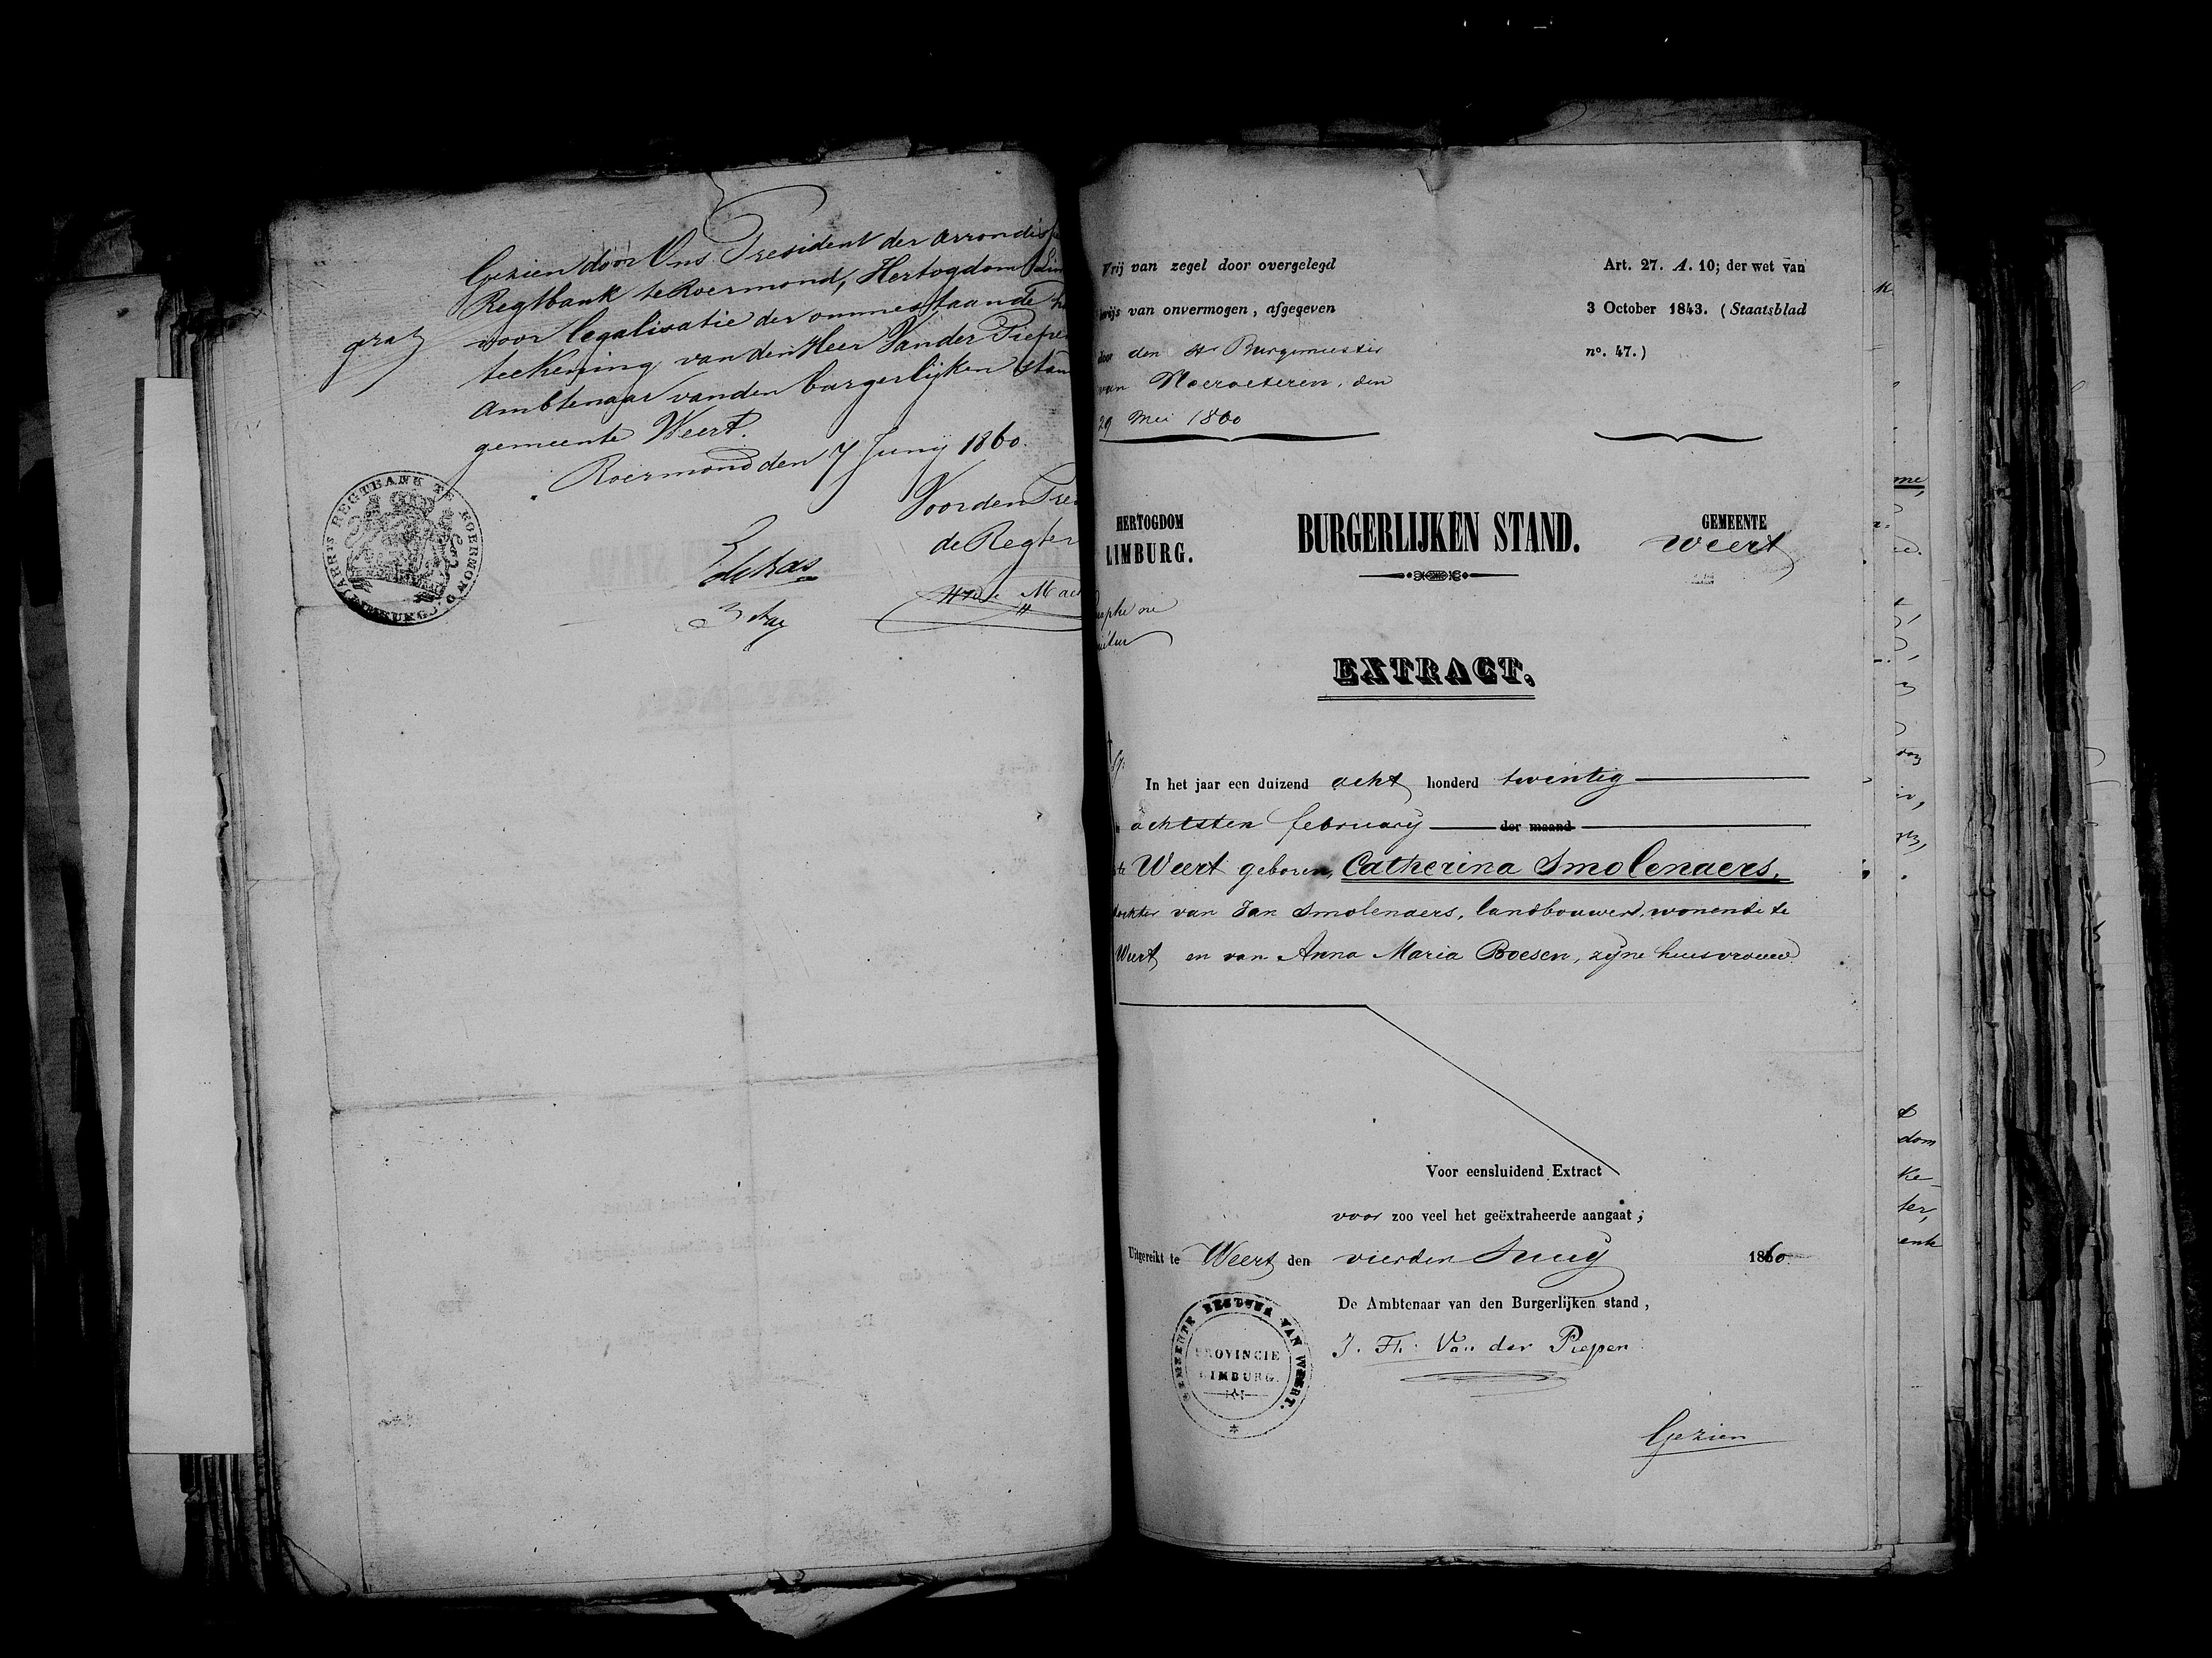 Gezien door Ons President der arrondiss
Regtbank te Roermond, Hertogdom Lim
voor legalisatie der ommestaande h
teekening van den Heer Vander Piepe
ambtenaar van den burgerlijken stan
gemeente Weert.
Roermond den 7 Junij 1860.
Voor den Pre
de Regter
ARR'TS REGTBANK TE ROERMOND (LIMBURG)
Vrij van zegel door overgelegd
wijs van onvermogen, afgegeven
door den Hr Burgemeester
van Neeroeteren, den
29 Mei 1860
Art. 27. A. 10; der wet van
3 October 1843. (Staatsblad
no. 47.)
HERTOGDOM
LIMBURG.
BURGERLIJKEN STAND.
GEMEENTE
Weert
EXTRACT.
In het jaar een duizend acht honderd twintig
achtsten february der maand
te Weert geboren, Catherina Smolenaers,
dochter van Jan Smolenaers, landbouwer, wonende te
Weert en van Anna Maria Boesen, zijne huisvrouw.
Voor eensluidend Extract
voor zoo veel het geëxtraheerde aangaat;
Uitgereikt te Weert den vierden Junij 1860.
De Ambtenaar van den Burgerlijken stand,
J. Fh. Van der Piepen
GEMEENTE BESTUUR VAN WEERT.
PROVINCIE
LIMBURG.
Gezien